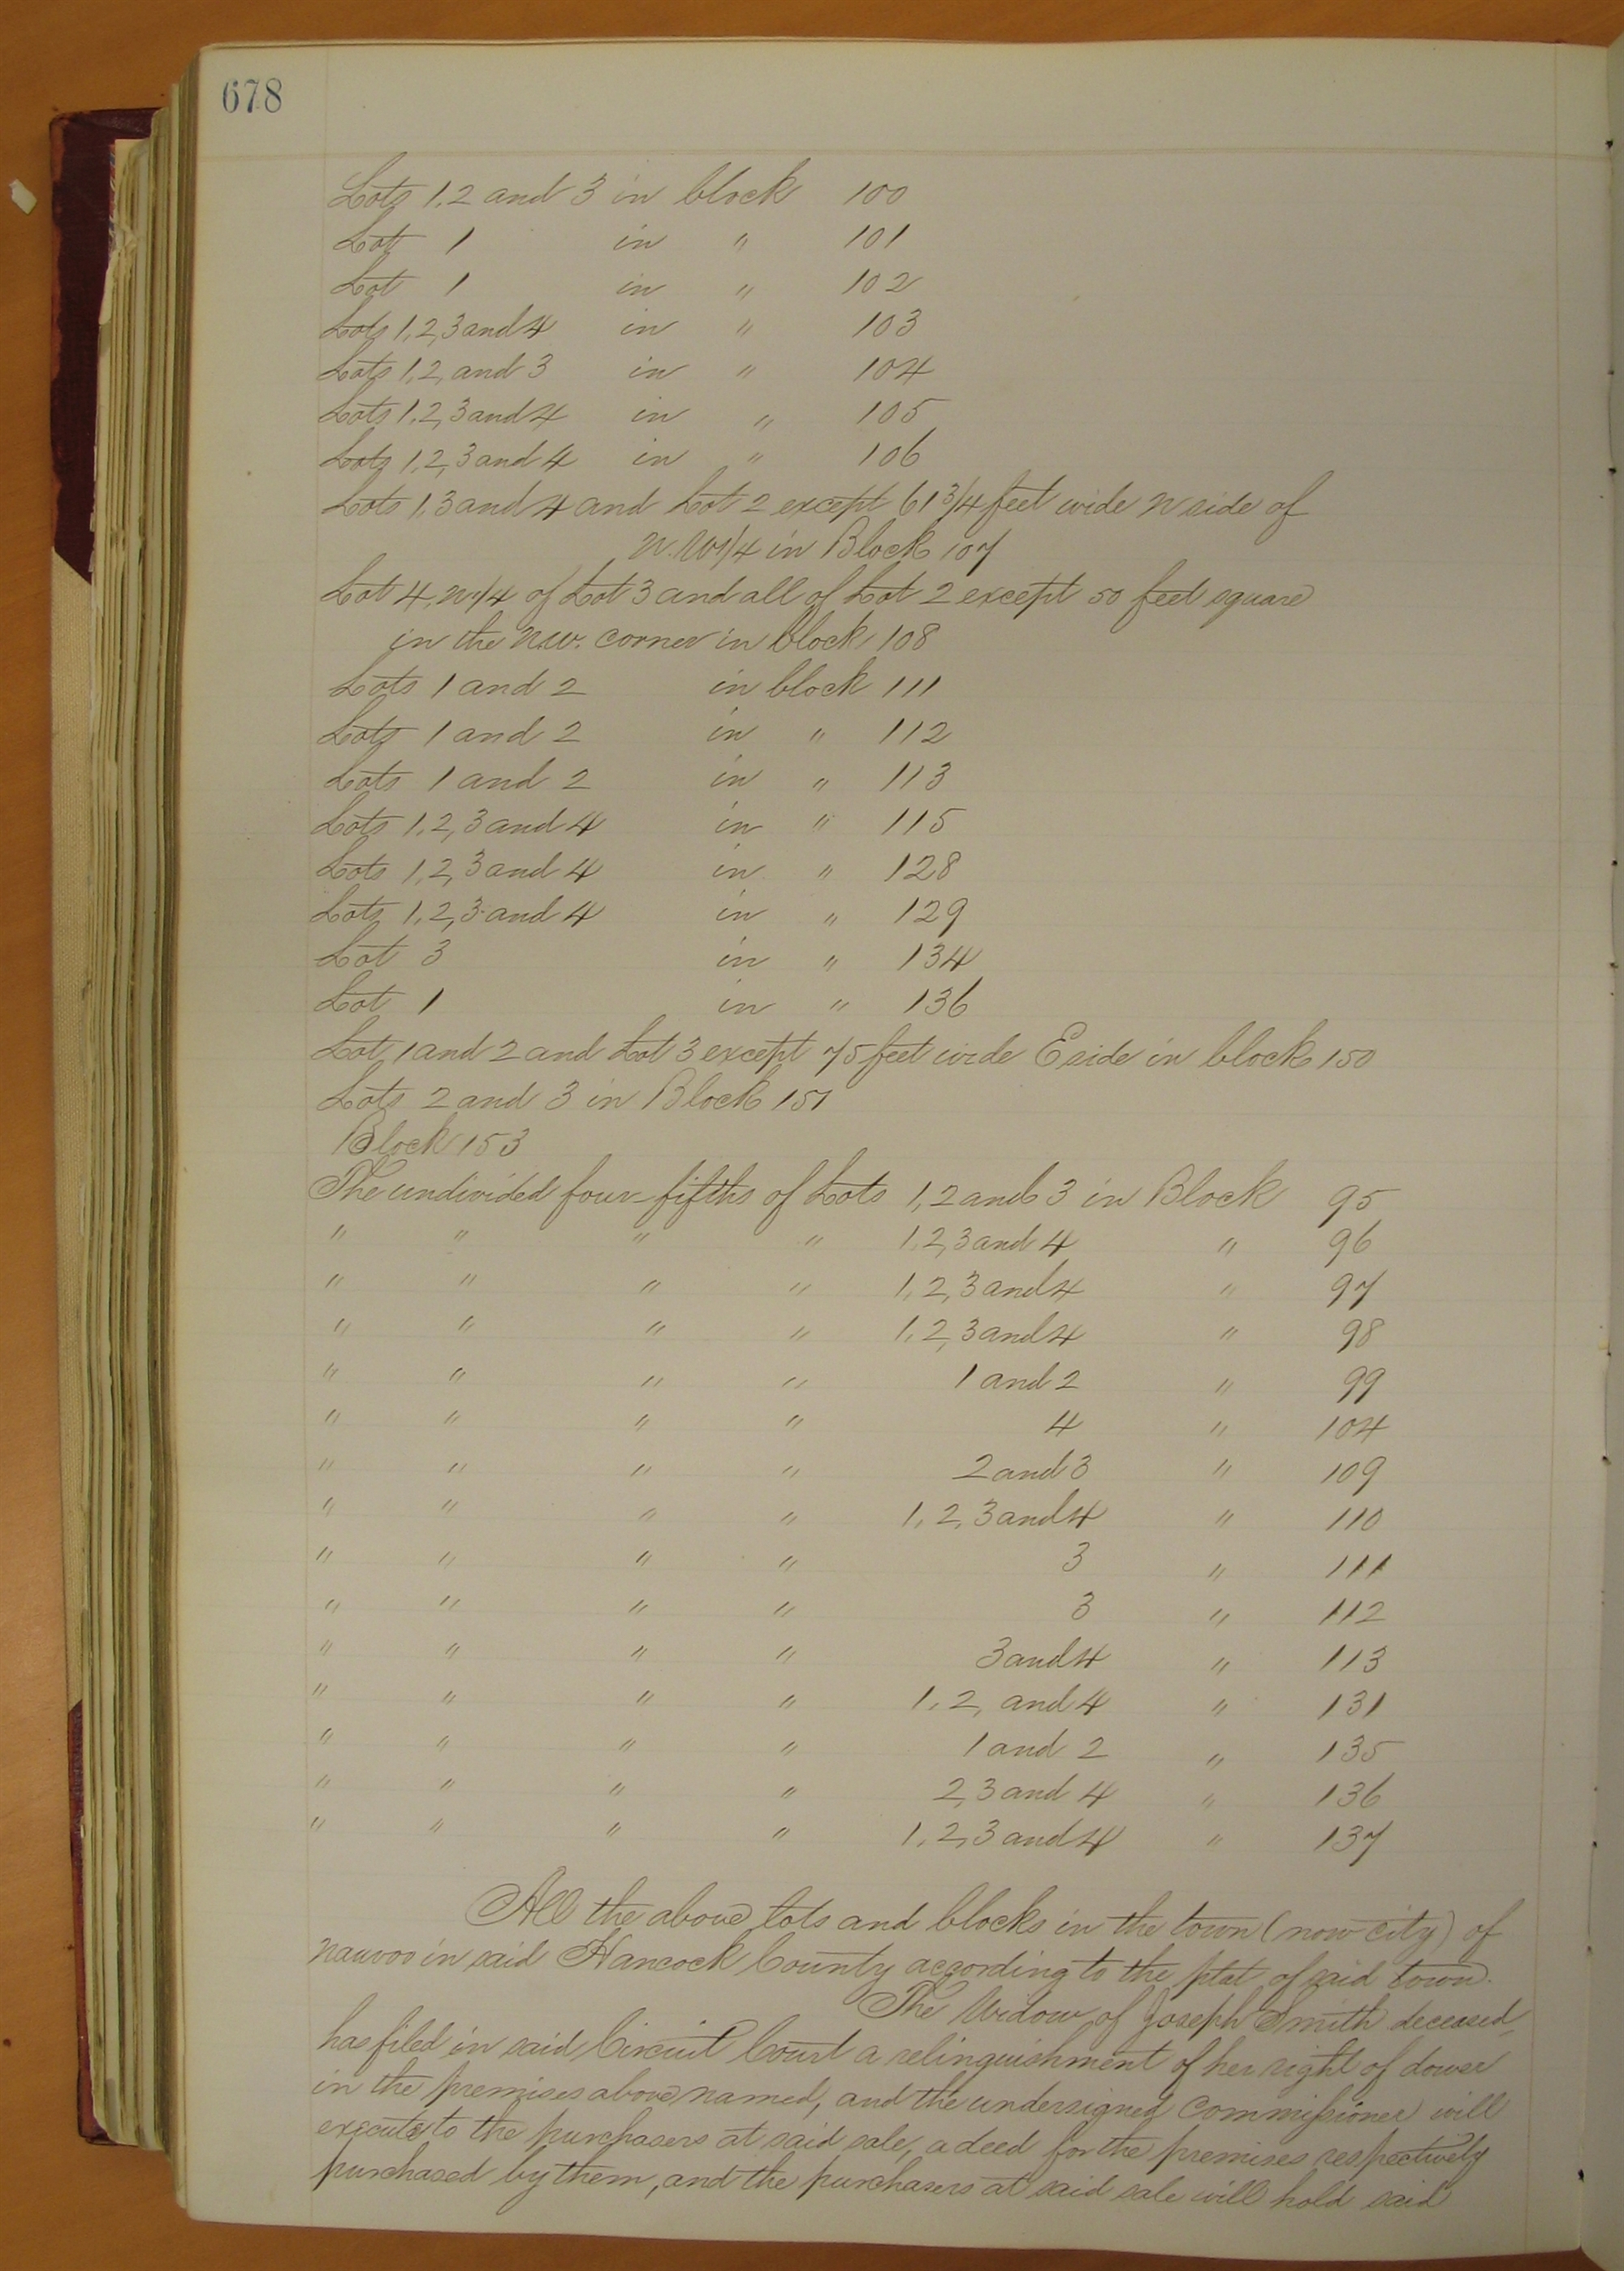 678
Lots 1, 2 and 3 in block 100
Lot 1 in " 101
Lot 1 in " 102
Lots 1, 2, 3 and 4 in " 103
Lots 1, 2, and 3 in " 104
Lots 1, 2, 3 and 4 in " 105
Lots 1, 2, 3 and 4 in " 106
Lots 1, 3 and 4 and Lot 2 except 61 3/4 feet wide N side of
N. W 1/4 in Block 107
Lot 4, N 1/4 of Lot 3 and all of Lot 2 except 50 feet square
in the N.W. corner in block 108
Lots 1 and 2 in block 111
Lots 1 and 2 in " 112
Lots 1 and 2 in " 113
Lots 1, 2, 3 and 4 in " 115
Lots 1, 2, 3 and 4 in " 128
Lots 1, 2, 3 and 4 in " 129
Lot 3 in " 134
Lot 1 in " 136
Lot 1 and 2 and Lot 3 except 75 feet wide E side in block 150
Lots 2 and 3 in Block 151
Block 153
The undivided four-fifths of Lots 1, 2 and 3 in Block 95
" " " " 1, 2, 3 and 4 " 96
" " " " 1, 2, 3 and 4 " 97
" " " " 1, 2, 3 and 4 " 98
" " " " 1 and 2 " 99
" " " " 4 " 104
" " " " 2 and 3 " 109
" " " " 1, 2, 3 and 4 " 110
" " " " 3 " 111
" " " " 3 " 112
" " " " 3 and 4 " 113
" " " " 1, 2, and 4 " 131
" " " " 1 and 2 " 135
" " " " 2, 3 and 4 " 136
" " " " 1, 2, 3 and 4 " 137
All the above lots and blocks in the town (now city) of
Nauvoo in said Hancock County according to the plat of said town.
The Widow of Joseph Smith deceased,
has filed in said Circuit Court a relinquishment of her right of dower
in the premises above named, and the undersigned Commissioner will
execute to the purchasers at said sale, a deed for the premises respectively
purchased by them, and the purchasers at said sale will hold said